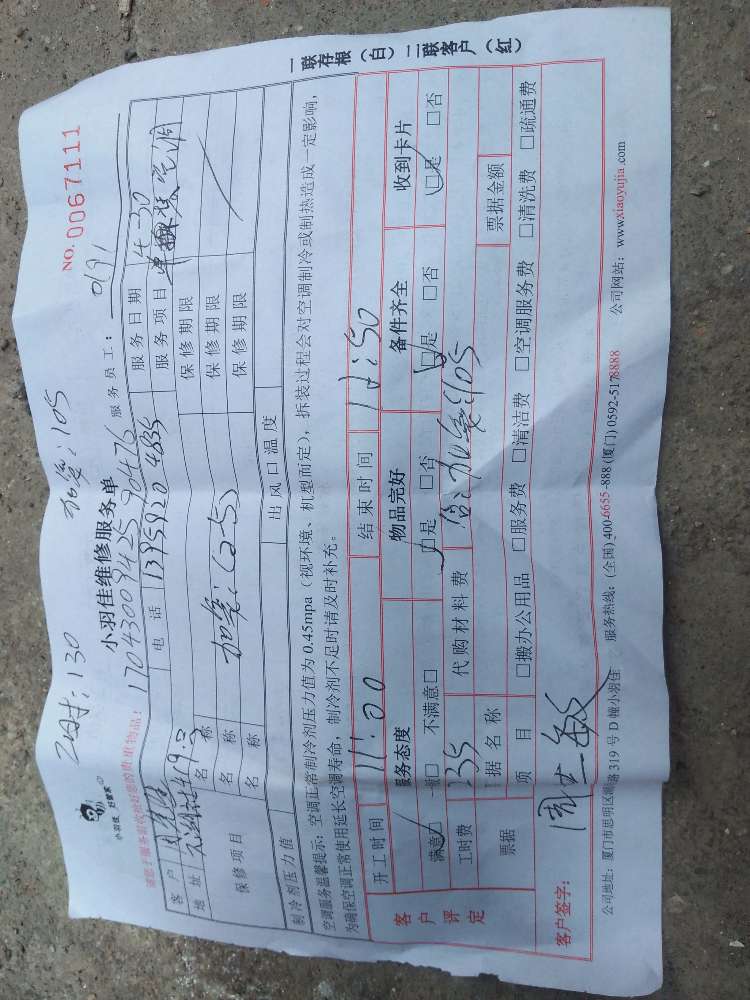 2时:130 加氨:105
小羽佳 好管家
小羽佳维修服务单
NO. 0067111
请您于服务前收拾好您的贵重物品!
17043009425 90476
服务员工: 0191
客户
电话 1395920 4835
服务日期 4-30
地址
服务项目
保修项目
名称
加氨:(2-5)
保修期限
名称
保修期限
名称
保修期限
制冷剂压力值
出风口温度
空调服务温馨提示:空调正常制冷剂压力值为0.45mpa(视环境、机型而定),拆装过程会对空调制冷或制热造成一定影响,
为确保空调正常使用延长空调寿命,制冷剂不足时请及时补充。
客户评定
开工时间 11:00
结束时间
服务态度
物品完好
备件齐全
收到卡片
满意□ 一般□ 不满意□
□是 □否
□是 □否
□是 □否
工时费
代购材料费
票据
据名称
票据金额
项目
□搬办公用品 □服务费 □清洁费 □空调服务费 □清洗费 □疏通费
客户签字:
公司地址:厦门市思明区湖 路319号D幢小羽佳 服务热线:(全国)4006655-888(厦门)0592-5178888 公司网站:www.xiaoyujia.com
一联存根(白)二联客户(红)